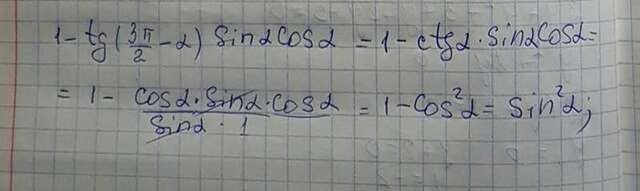 1 - tg(3π/2 - α) sinα cosα = 1 - ctgα · sinα cosα =
= 1 - cosα · sinα · cosα / sinα · 1 = 1 - cos²α = sin²α;